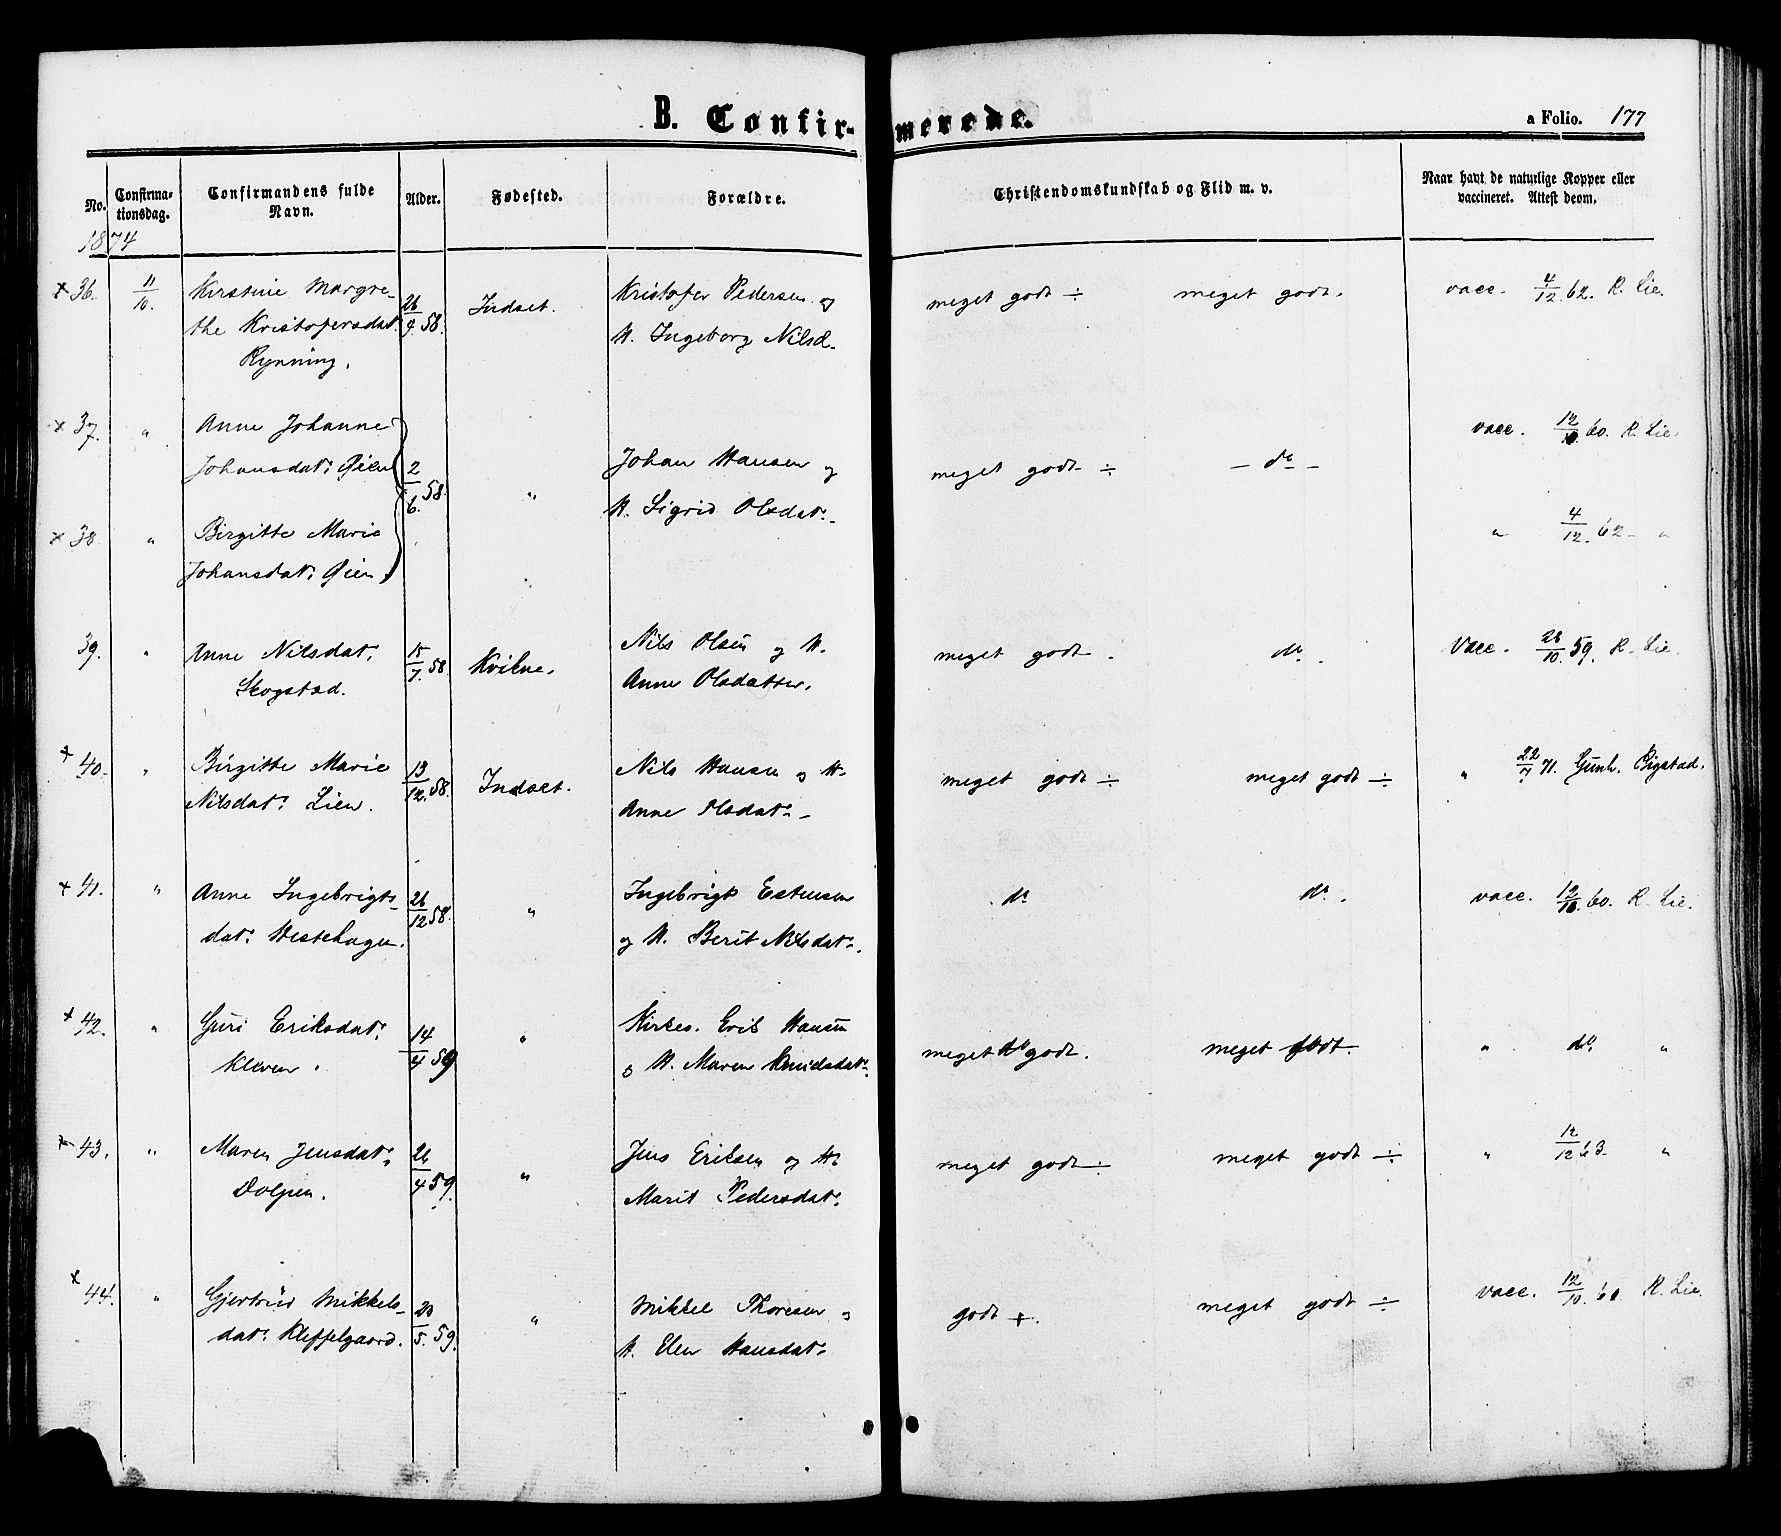 B. Confir-
merede.
a Folio. 177
No.
Confirma-
tionsdag.
Confirmandens fulde
Navn.
Alder.
Fødested.
Forældre.
Christendomskundskab og Flid m. v.
Naar havt de naturlige Kopper eller
vaccineret. Attest derom.
1874
x 36. 11/10. Kirstine Margre- 26/4 58. Indset. Kristofer Pedersen og meget godt ÷ meget godt. vacc. 4/12 62. R. Lie.
the Kristofersdat. H. Ingeborg Nilsd.
Rynning.
x 37. " Anne Johanne vacc. 12/10 60. R. Lie.
Johansdat. Øien 2/6. 58. " Johan Hansen og meget godt ÷ - do -
H. Sigrid Olsdat.
x 38 " Birgitte Marie " 4/12. 62 "
Johansdat. Øien "
39. " Anne Nilsdat. 15/7. 58 Kvikne. Nils Olsen og H. meget godt. do. Vacc. 28/10. 59. R. Lie.
Skogstad. Anne Olsdatter.
x 40. " Birgitte Marie 13/12. 58. Indset. Nils Hansen og H. meget godt ÷ meget godt ÷ " 22/7 71. Gunh. Rigstad.
Nilsdat. Lien. Anne Olsdat.
x 41. " Anne Ingebrigts- 26/12 58. " Ingebrigt Estensen do do. vacc. 12/10. 60. R. Lie.
dat. Hestehagen. og H. Berit Nilsdat.
x 42. " Guri Eriksdat. 14/4 59 " Kirkes. Erik Hansen meget godt. meget godt. " do. "
Kleven. og H. Maren Knudsdat.
x 43. " Maren Jensdat. 26/4 59. " Jens Eriksen og H. meget godt ÷ meget godt ÷ " 12/12 63 "
Dolpen. Marit Pedersdat.
x 44. " Gjertrud Mikkels- 20/5. 59. " Mikkel Thoresen og godt +. meget godt ÷ vacc. 12/10. 60 R. Lie.
dat. Kleffelgaard. H. Elen Hansdat.